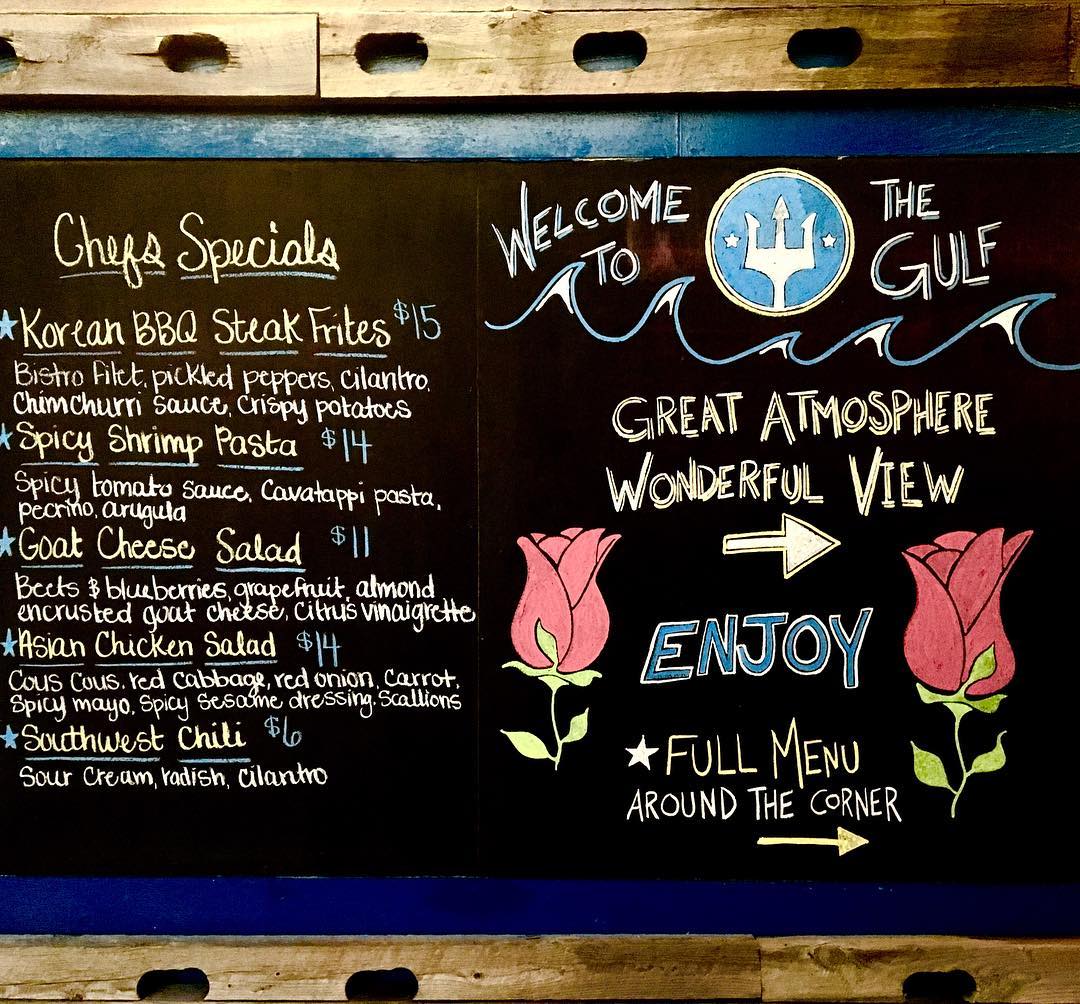 Chefs Specials
Korean BBQ Steak Frites $15
Bistro Filet, pickled peppers, cilantro,
Chimchurri sauce, Crispy potatoes
Spicy Shrimp Pasta $14
Spicy tomato sauce, Cavatappi pasta,
pecrino, arugula
Goat Cheese Salad $11
Beets & blueberries, grapefruit, almond
encrusted goat cheese, Citrus vinaigrette
Asian Chicken Salad $14
Cous Cous, red Cabbage, red onion, Carrot,
Spicy mayo, Spicy Sesame dressing. Scallions
Southwest Chili $6
Sour Cream, radish, cilantro
WELCOME TO
THE GULF
GREAT ATMOSPHERE
WONDERFUL VIEW
ENJOY
FULL MENU
AROUND THE CORNER